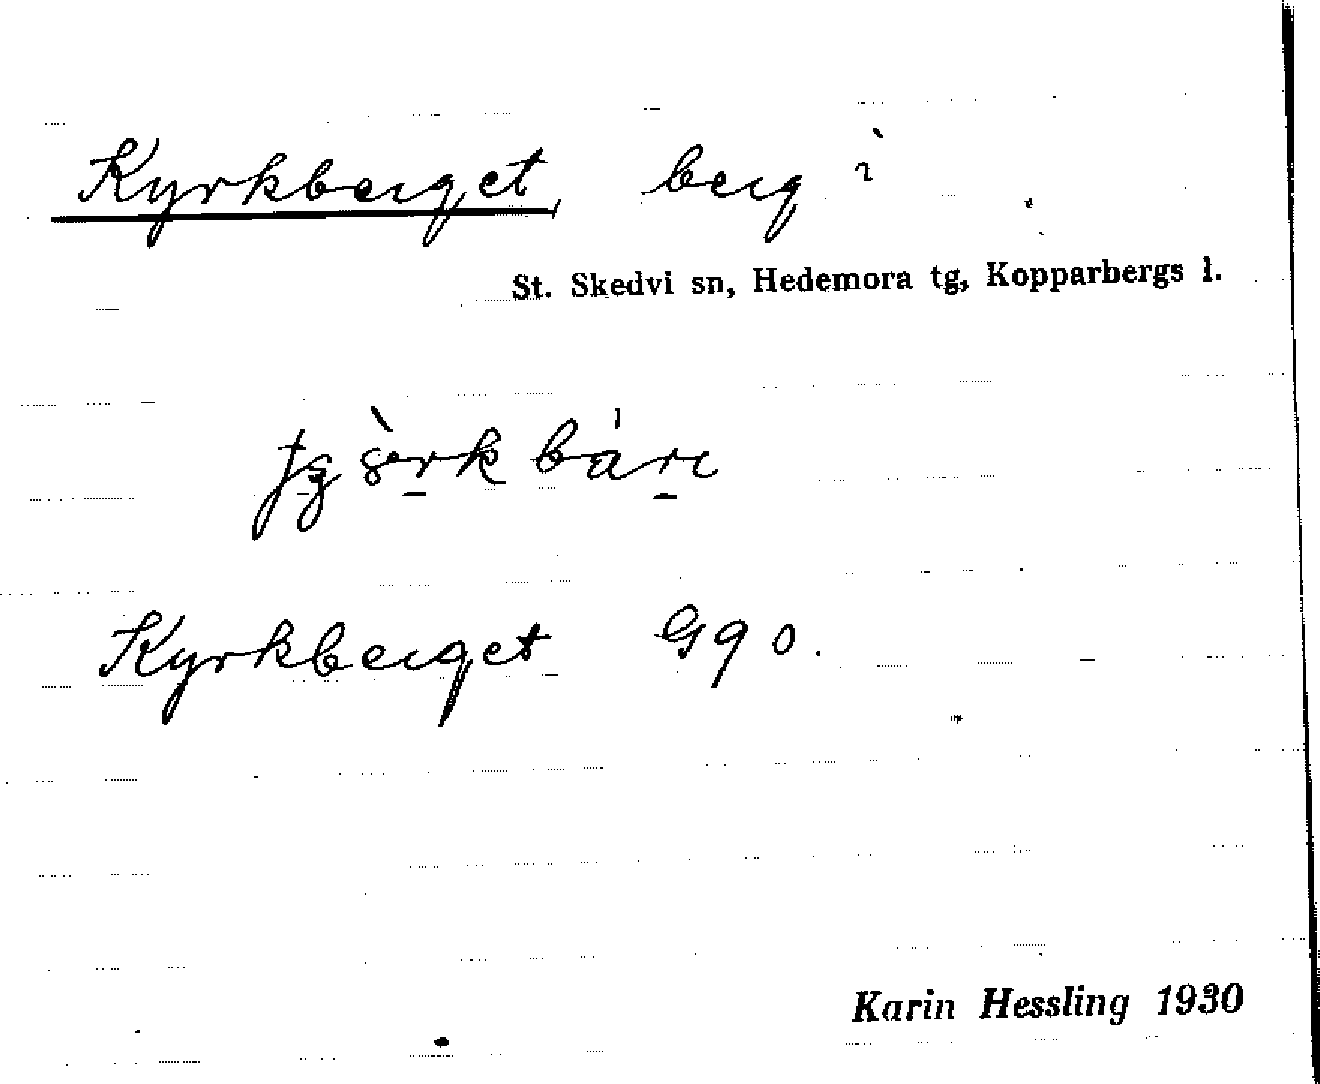 Kyrkberget, berg i
St. Skedvi sn, Hedemora tg, Kopparbergs l.
Kyrkberget
Karin Hessling 1930